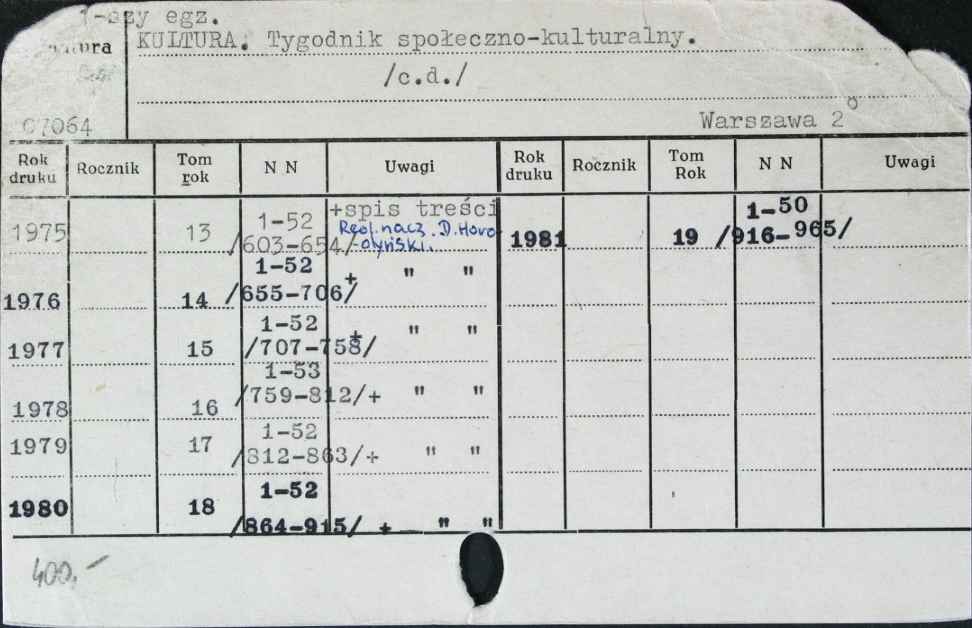 1-szy egz.
KULTURA. Tygodnik społeczno-kulturalny.
/c.d./
07064 Warszawa 2°
Rok druku Rocznik Tom rok N N Uwagi Rok druku Rocznik Tom Rok N N Uwagi
1975 13 1-52 /603-654/ +spis treści Red. nacz. D. Horodyński. 1981 19 1-50 /916-965/
1976 14 1-52 /655-706/ + " "
1977 15 1-52 /707-758/ + " "
1978 16 1-53 /759-812/+ " "
1979 17 1-52 /812-863/+ " "
1980 18 1-52 /864-915/ + " "
400,-